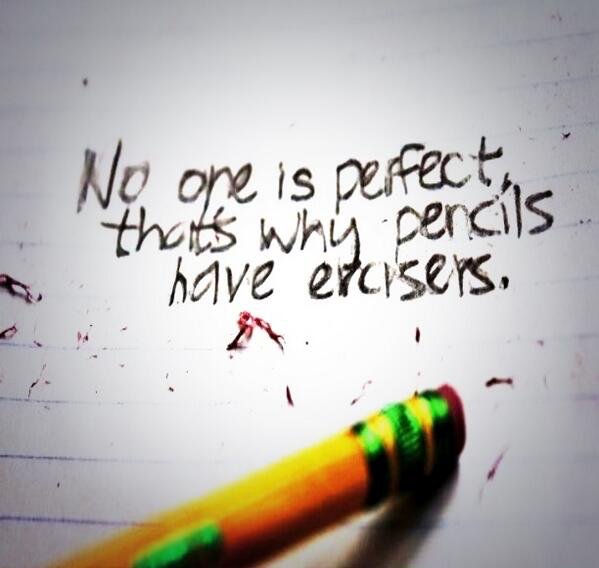 No one is perfect,
that's why pencils
have erasers.